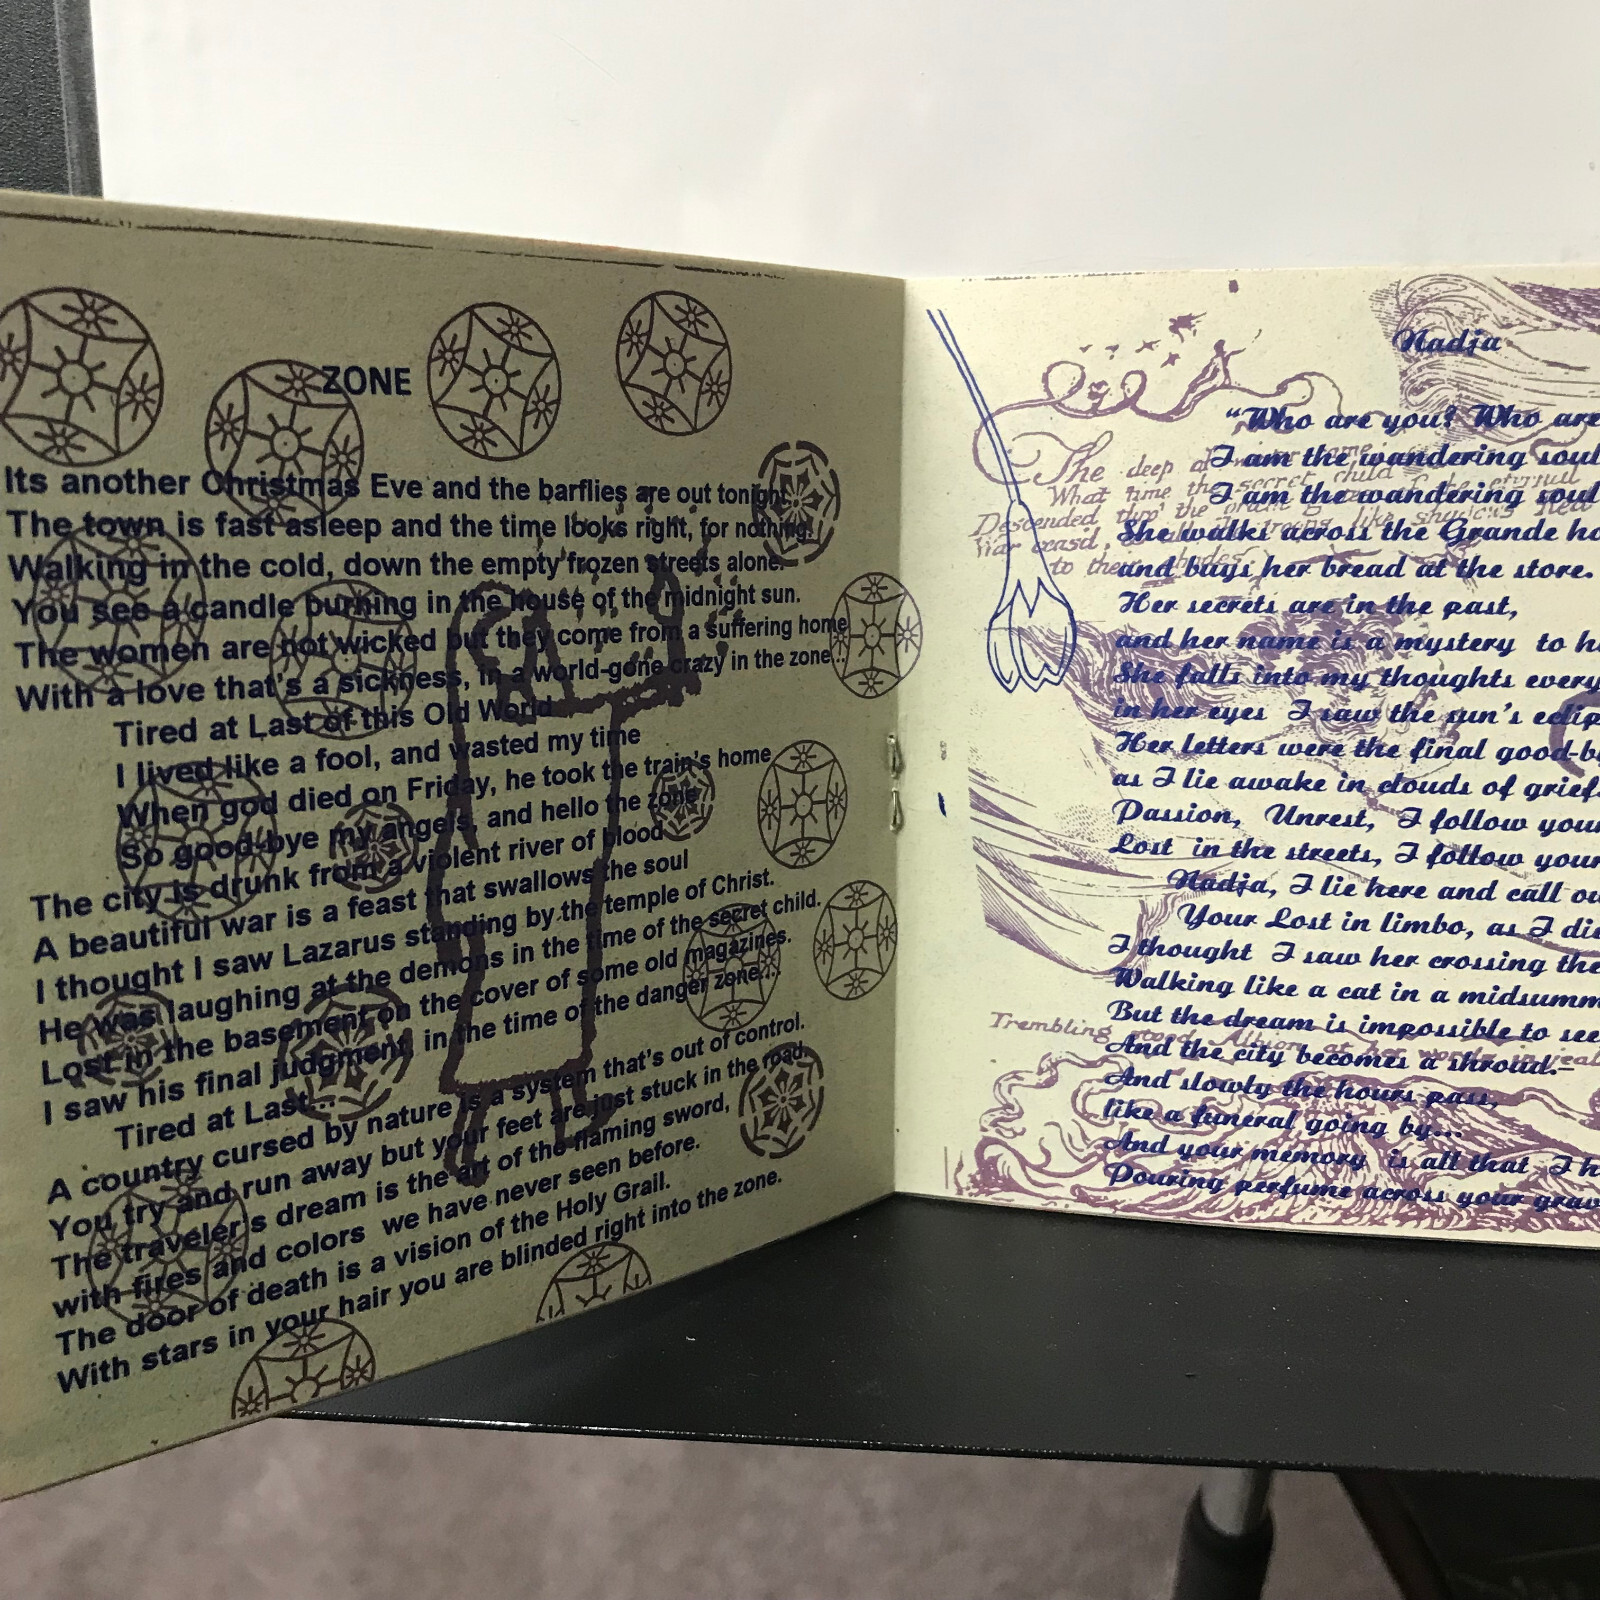 ZONE
Its another Christmas Eve and the barflies are out tonight.
The town is fast asleep and the time looks right, for nothing.
Walking in the cold, down the empty frozen streets alone.
You see a candle burning in the house of the midnight sun.
The women are not wicked but they come from a suffering home
With a love that's a sickness, in a world-gone crazy in the zone...
Tired at Last of this Old World
I lived like a fool, and wasted my time
When god died on Friday, he took the train's home
So good-bye my angels, and hello the zone
The city is drunk from a violent river of blood
A beautiful war is a feast that swallows the soul
I thought I saw Lazarus standing by the temple of Christ.
He was laughing at the demons in the time of the secret child.
Lost in the basement on the cover of some old magazines.
I saw his final judgment, in the time of the danger zone...
Tired at Last...
A country cursed by nature is a system that's out of control.
You try and run away but your feet are just stuck in the road.
The traveler's dream is the art of the flaming sword,
with fires and colors we have never seen before.
The door of death is a vision of the Holy Grail.
With stars in your hair you are blinded right into the zone.
Nadja
"Who are you? Who are
I am the wandering soul
I am the wandering soul
She walks across the Grande
and buys her bread at the store.
Her secrets are in the past,
and her name is a mystery to
She falls into my thoughts every
in her eyes I saw the sun's
Her letters were the final
as I lie awake in clouds of grief
Passion, Unrest, I follow your
Lost in the streets, I follow your
Nadja, I lie here and call
Your Lost in limbo, as I
I thought I saw her crossing the
Walking like a cat in a
But the dream is impossible to see
And the city becomes a shroud.—
And slowly the hours pass,
like a funeral going by...
And your memory is all that I
Pouring perfume across your
The deep
What time the secret child
Descended thro' the
War ceasd,
to their
Trembling stood Albion at